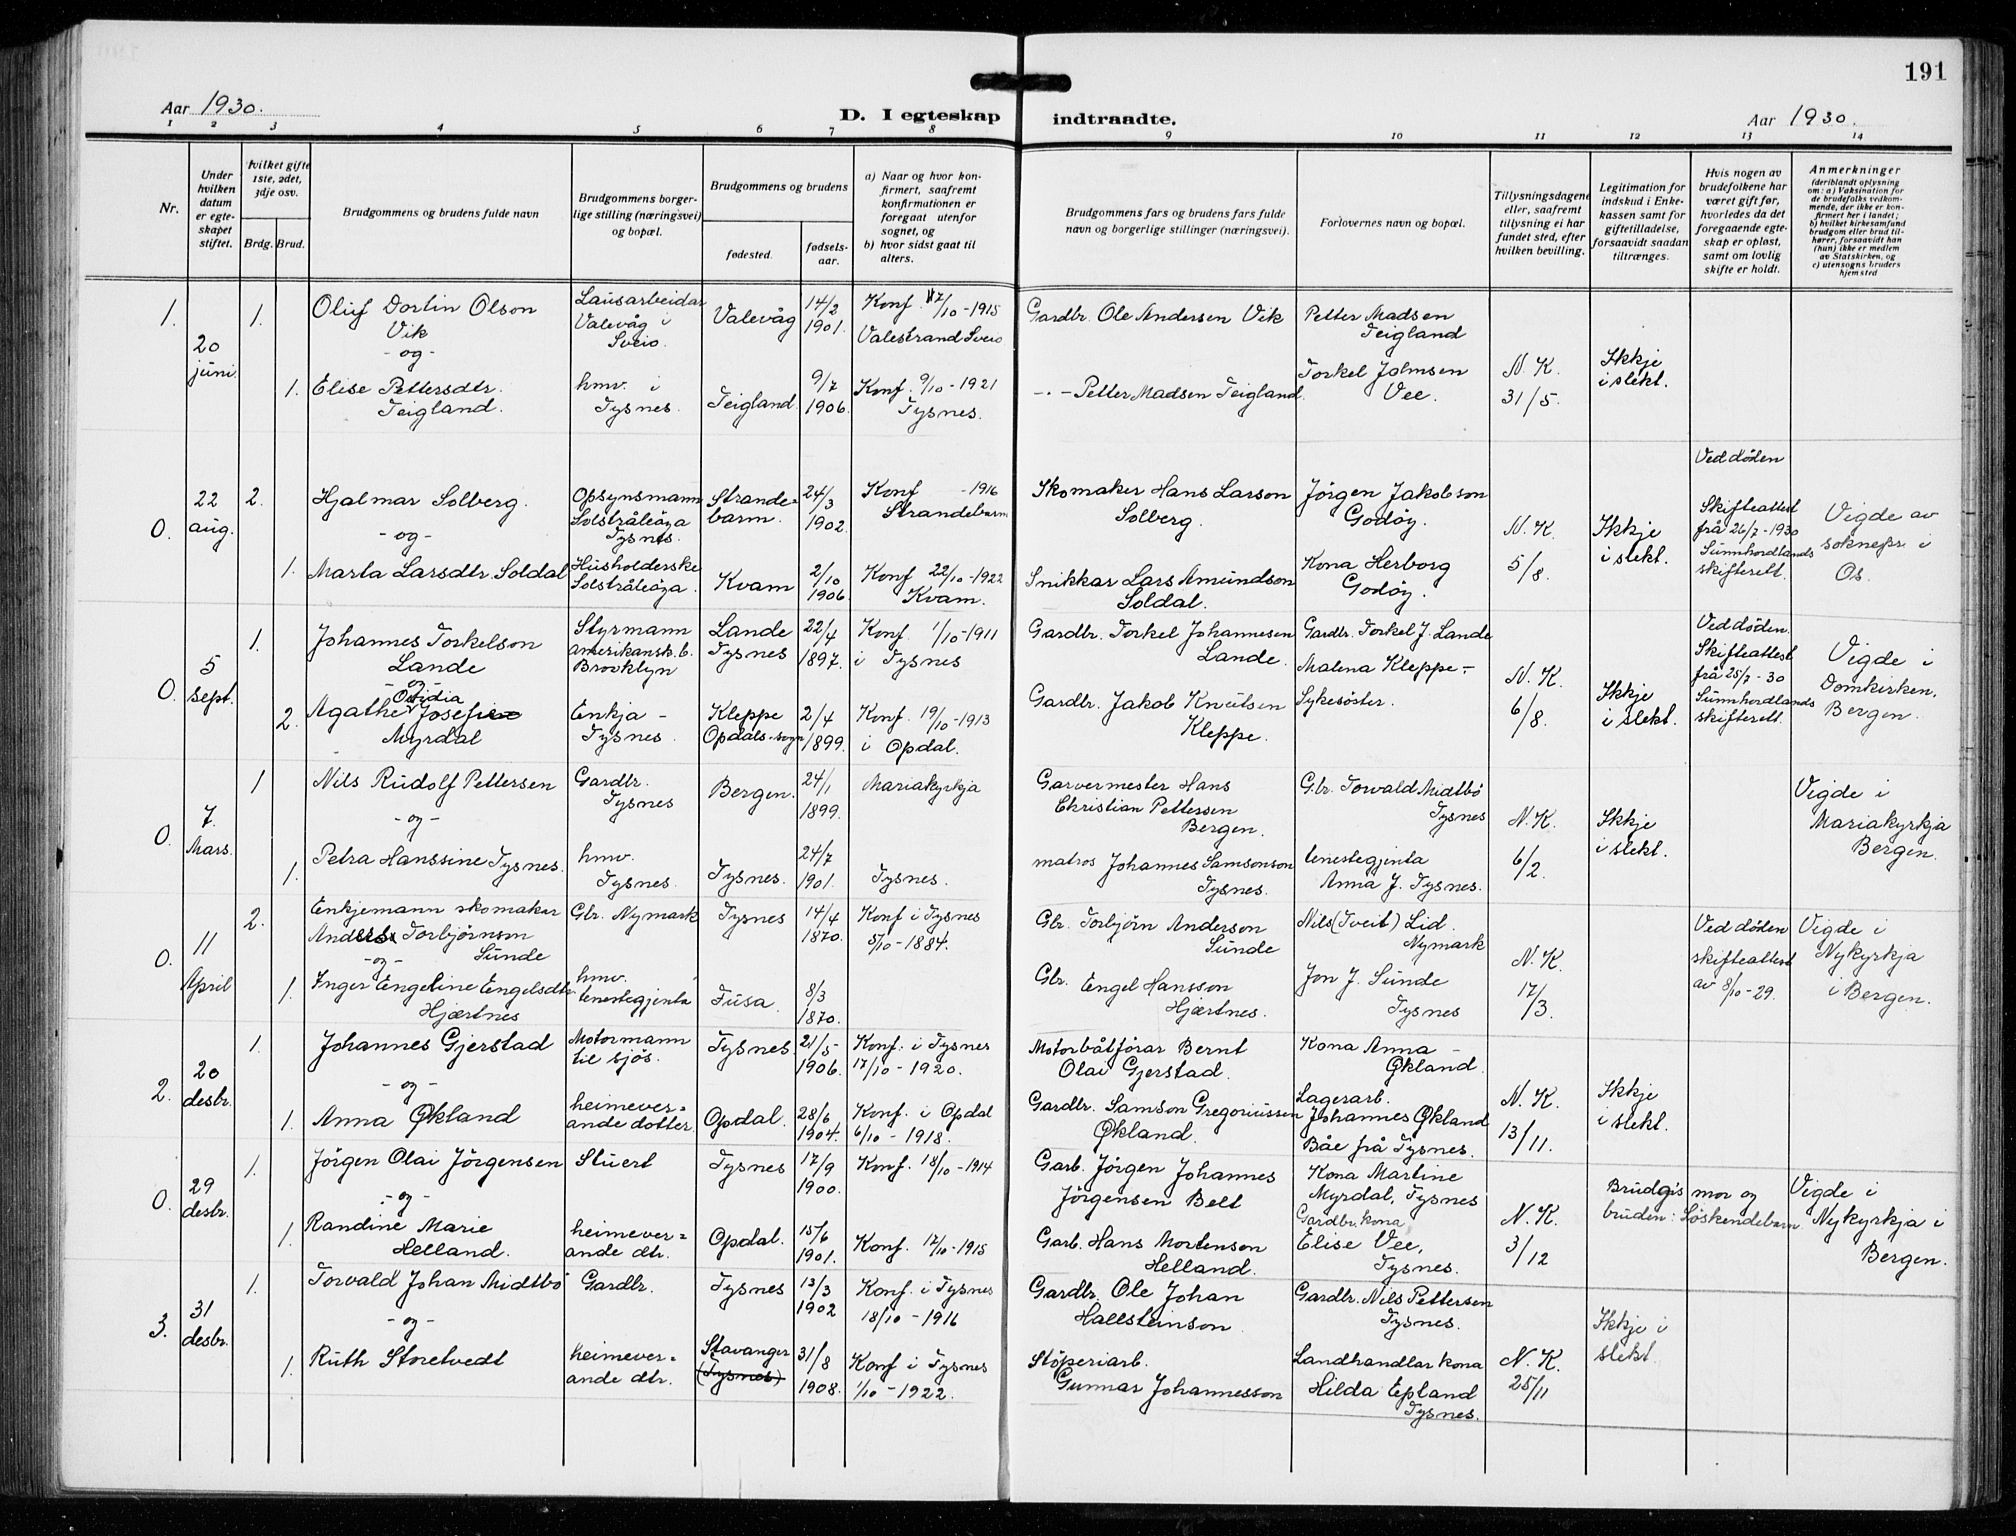 191
Aar 1930.
D. I egteskap indtraadte.
Aar 1930.
1 2 3 4 5 6 7 8 9 10 11 12 13 14
Nr.
Under hvilken datum er egteskapet stiftet.
hvilket gifte 1ste, 2det, 3dje osv.
Brdg. Brud.
Brudgommens og brudens fulde navn
Brudgommens borgerlige stilling (næringsvei) og bopæl.
Brudgommens og brudens
fødested.
fødselsaar.
a) Naar og hvor konfirmert, saafremt konfirmationen er foregaat utenfor sognet, og
b) hvor sidst gaat til alters.
Brudgommens fars og brudens fars fulde navn og borgerlige stillinger (næringsvei).
Forlovernes navn og bopæl.
Tillysningsdagene eller, saafremt tillysning ei har fundet sted, efter hvilken bevilling.
Legitimation for indskud i Enkekassen samt for giftetilladelse, forsaavidt saadan tiltrænges.
Hvis nogen av brudefolkene har været gift før, hvorledes da det foregaaende egteskap er opløst, samt om lovlig skifte er holdt.
Anmerkninger
(deriblandt oplysning om: a) Vaksination for de brudefolks vedkommende, der ikke er konfirmert her i landet; b) hvilket kirkesamfund brudgom eller brud tilhører, forsaavidt han (hun) ikke er medlem av Statskirken, og c) utensogns bruders hjemsted
1. 20 juni. 1. Oluf Dortin Olson Vik
Lausarbeidar Valevåg i Sveio.
Valevåg 14/2 1901.
Konf. 17/10-1915 Valestrand Sveio
Gardbr. Ole Andersen Vik
Petter Madsen Teigland
- og -
1. Elise Pettersdtr. Teigland.
hmv. i Tysnes.
Teigland. 9/7 1906.
Konf. 9/10-1921 Tysnes.
- . - Petter Madsen Teigland.
Torkel Jalmsen Vee.
N. K. 31/5.
Ikkje i slekt.
0. 22 aug. 2. Hjalmar Solberg.
Opsynsmann Solstråleøya Tysnes.
Strandebarm. 24/3 1902.
Konf -1916 Strandebarm
Skomaker Hans Larson Solberg.
Jörgen Jakobson Godøy.
- og -
1. Marta Larsdtr. Soldal
Husholderske Solstråleøya.
Kvam 2/10 1906.
Konf 22/10-1922 Kvam.
Snikkar Lars Amundson Soldal.
Kona Herborg Godøy.
N. K. 5/8.
Ikkje i slekt.
Ved døden
Skifteattest frå 26/7-1930 Sunnhordlands skifterett.
Vigde av soknepr. i Os.
0. 5 sept. 1. Johannes Torkelson Lande
Styrmann amerikansk. b. Brooklyn
Lande Tysnes 22/4 1897.
Konf. 1/10-1911 i Tysnes
Gardbr. Torkel Johannesen Lande.
Gardbr. Torkel J. Lande
- og -
2. Agathe Ovidia Josefine Myrdal
Enkja - Tysnes.
Kleppe Opdals-sogn 2/4 1899.
Konf. 19/10-1913 i Opdal.
Gardbr. Jakob Knutsen Kleppe.
Malena Kleppe - Sykesøster.
N. K. 6/8.
Ikkje i slekt.
Ved døden. Skifteattest frå 25/7-30 Sunnhordlands skifterett.
Vigde i Domkirken. Bergen.
0. 7. Mars. 1 Nils Rudolf Pettersen
Gardbr. Tysnes
Bergen. 24/1 1899.
Mariakyrkja
Garvermester Hans Christian Pettersen Bergen.
Gbr. Torvald Midtbö Tysnes
- og -
1. Petra Hanssine Tysnes.
hmv. Tysnes.
Tysnes. 24/7 1901.
Tysnes.
matros Johannes Samsonson Tysnes.
tenestegjenta Anna J. Tysnes.
N. K. 6/2
Ikkje i slekt.
Vigde i Mariakyrkja Bergen.
0. 11 April 2. Enkjemann skomakar Anders Torbjörnson Sunde
Gbr. Nymark
Tysnes 14/4 1870.
Konf i Tysnes 5/10-1884.
Gbr. Torbjörn Anderson Sunde
Nils (Tveit) Lid. Nymark
- og -
1. Inger Engeline Engelsdtr. Hjærtnes
hmv. tenestegjenta
Fusa. 8/3 1870.
Gbr. Engel Hansson Hjærtnes.
Jon J. Sunde Tysnes
N. K. 17/3.
Ved døden skifteattest av 8/10-29.
Vigde i Nykyrkja i Bergen.
2. 20 desbr. 1. Johannes Gjerstad
Motormann til sjøs.
Tysnes. 21/5- 1906.
Konf. i Tysnes 17/10-1920.
Motorbåtförar Bernt Olai Gjerstad.
Kona Anna - Økland.
- og -
1. Anna Økland
heimeverande dotter
Opdal. 28/6 1904.
Konf. i Opdal 6/10-1918.
Gardbr. Samson Gregoriussen Økland.
Lagerarb. Johannes Økland
Båe frå Tysnes.
N. K. 13/11.
Ikkje i slekt.
0. 29 desbr. 1. Jörgen Olai Jörgensen
Stuert
Tysnes 17/9 1900.
Konf. 18/10-1914
Garb. Jörgen Johannes Jörgensen Belt
Kona Martine Myrdal, Tysnes
- og -
1. Randine Marie Helland.
heimeverande dtr.
Opdal. 15/6 1901.
Konf. 17/10-1915
Garb. Hans Mortenson Helland.
Gardbr. kona Elise Vee, Tysnes.
N. K. 3/12
Brudgs mor og bruden: Söskendebarn
Vigde i Nykyrkja i Bergen.
3. 31 desbr. 1. Torvald Johan Midtbö
Gardbr.
Tysnes 13/3 1902
Konf. i Tysnes 18/10-1916
Gardbr. Ole Johan Hallsteinson.
Gardbr. Nils Pettersen Tysnes.
- og -
1. Ruth Storetvedt
heimeverande dtr.
Stavanger (Tysnes) 31/8 1908.
Konf i Tysnes 1/10-1922.
Støperiarb. Gunnar Johannesson
Landhandlar kona Hilda Epland Tysnes.
N. K. 25/11
Ikkje i slekt.